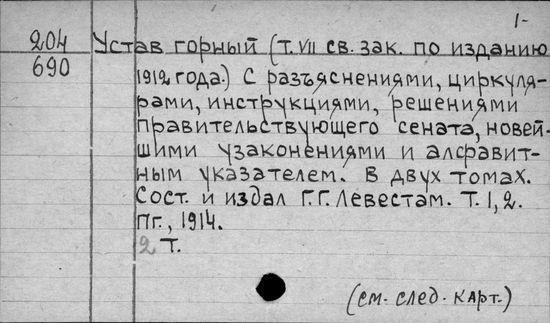 1-
204 Устав горный (т. VII св. зак. по изданию
690 1912 года.) С разъяснениями, циркуля-
рами, инструкциями, решениями
правительствующего сената, новей-
шими узаконениями и алфавит-
ным указателем. В двух томах.
Сост. и издал Г. Г. Левестам. Т. 1, 2.
Пг., 1914.
2 т.
(см. след. карт.)